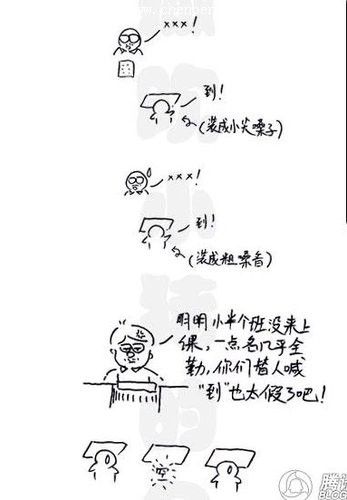 xxx!
到!
(装成小尖嗓子)
xxx!
到!
(装成粗嗓音)
明明小半个班没来上
课,一点名几乎全
勤,你们替人喊
"到"也太假了吧!
BLOG